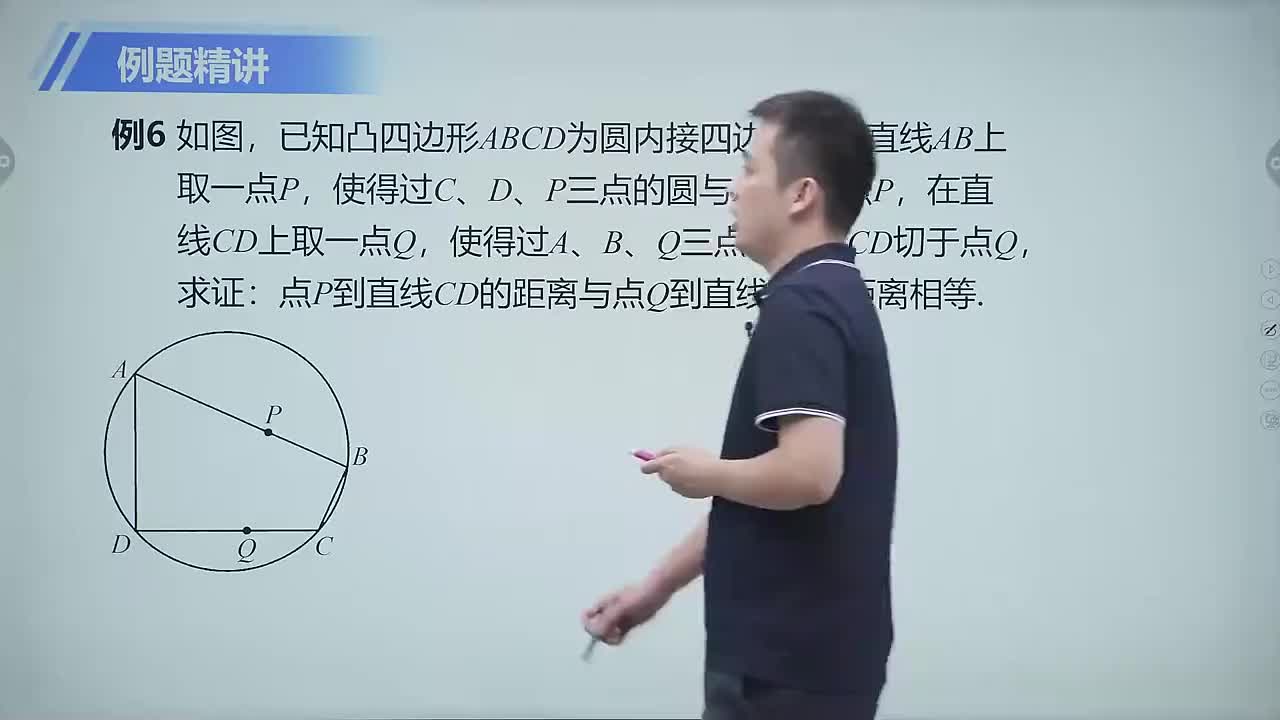 例题精讲
例6 如图，已知凸四边形ABCD为圆内接四边 直线AB上
取一点P，使得过C、D、P三点的圆与 P，在直
线CD上取一点Q，使得过A、B、Q三点 CD切于点Q，
求证：点P到直线CD的距离与点Q到直线 距离相等.
A
P
B
D
Q
C